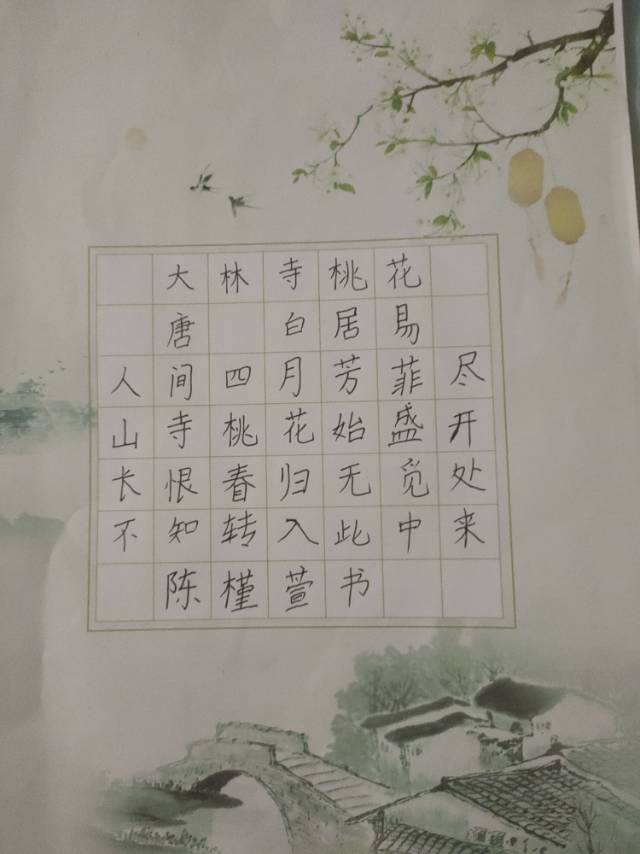 大林寺桃花
唐 白居易
人间四月芳菲尽
山寺桃花始盛开
长恨春归无觅处
不知转入此中来
陈槿萱书